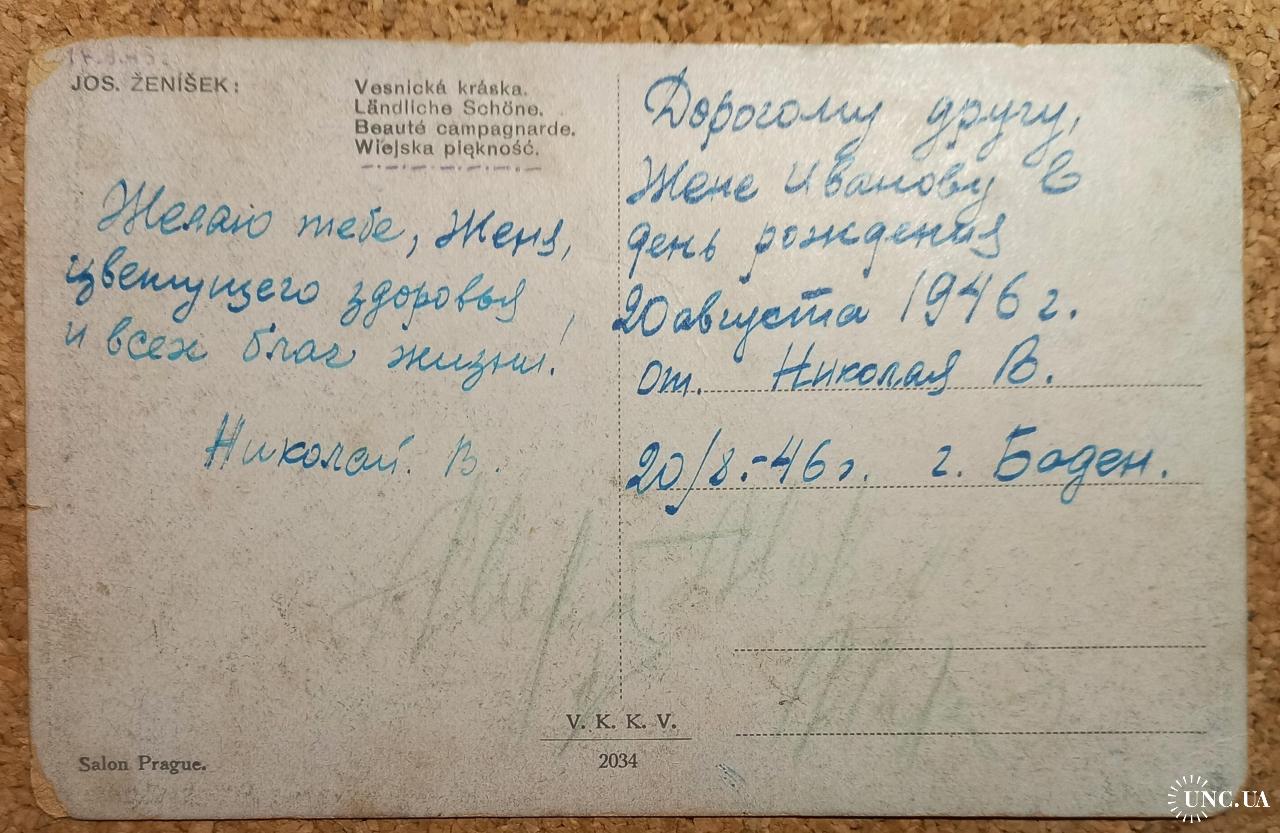 JOS. ŽENÍŠEK:
Vesnická kráska.
Ländliche Schöne.
Beauté campagnarde.
Wiejska piękność.
Желаю тебе, Женя,
цветущего здоровья,
и всех благ жизни!
Николай. В.
Дорогому другу,
Жене Иванову в
день рождения
20 августа 1946 г.
от. Николая В.
20/8.-46г. г. Баден.
V. K. K. V.
2034
Salon Prague.
UNC.UA